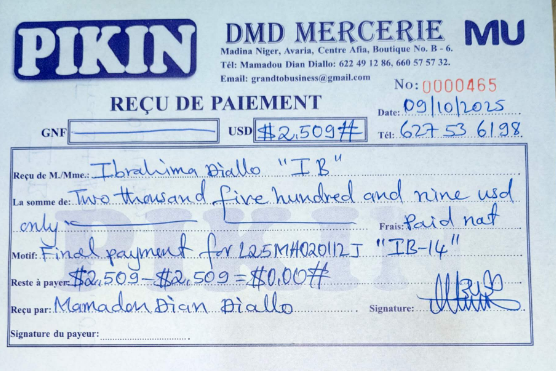 PIKIN
DMD MERCERIE MU
Madina Niger, Avaria, Centre Afia, Boutique No. B - 6.
Tél: Mamadou Dian Diallo: 622 49 12 86, 660 57 57 32.
Email: grandtobusiness@gmail.com
No: 0000465
REÇU DE PAIEMENT
Date: 09/10/2025
GNF USD $2,509#
Tél: 627 53 61 98
Reçu de M./Mme.: Ibrahima Diallo "IB"
La somme de: Two thousand five hundred and nine usd
only Frais: Paid
Motif: Final payment for L25MH020112J "IB-14"
Reste à payer: $2,509-$2,509=$0.00#
Reçu par: Mamadou Dian Diallo Signature:
Signature du payeur:
PIKIN